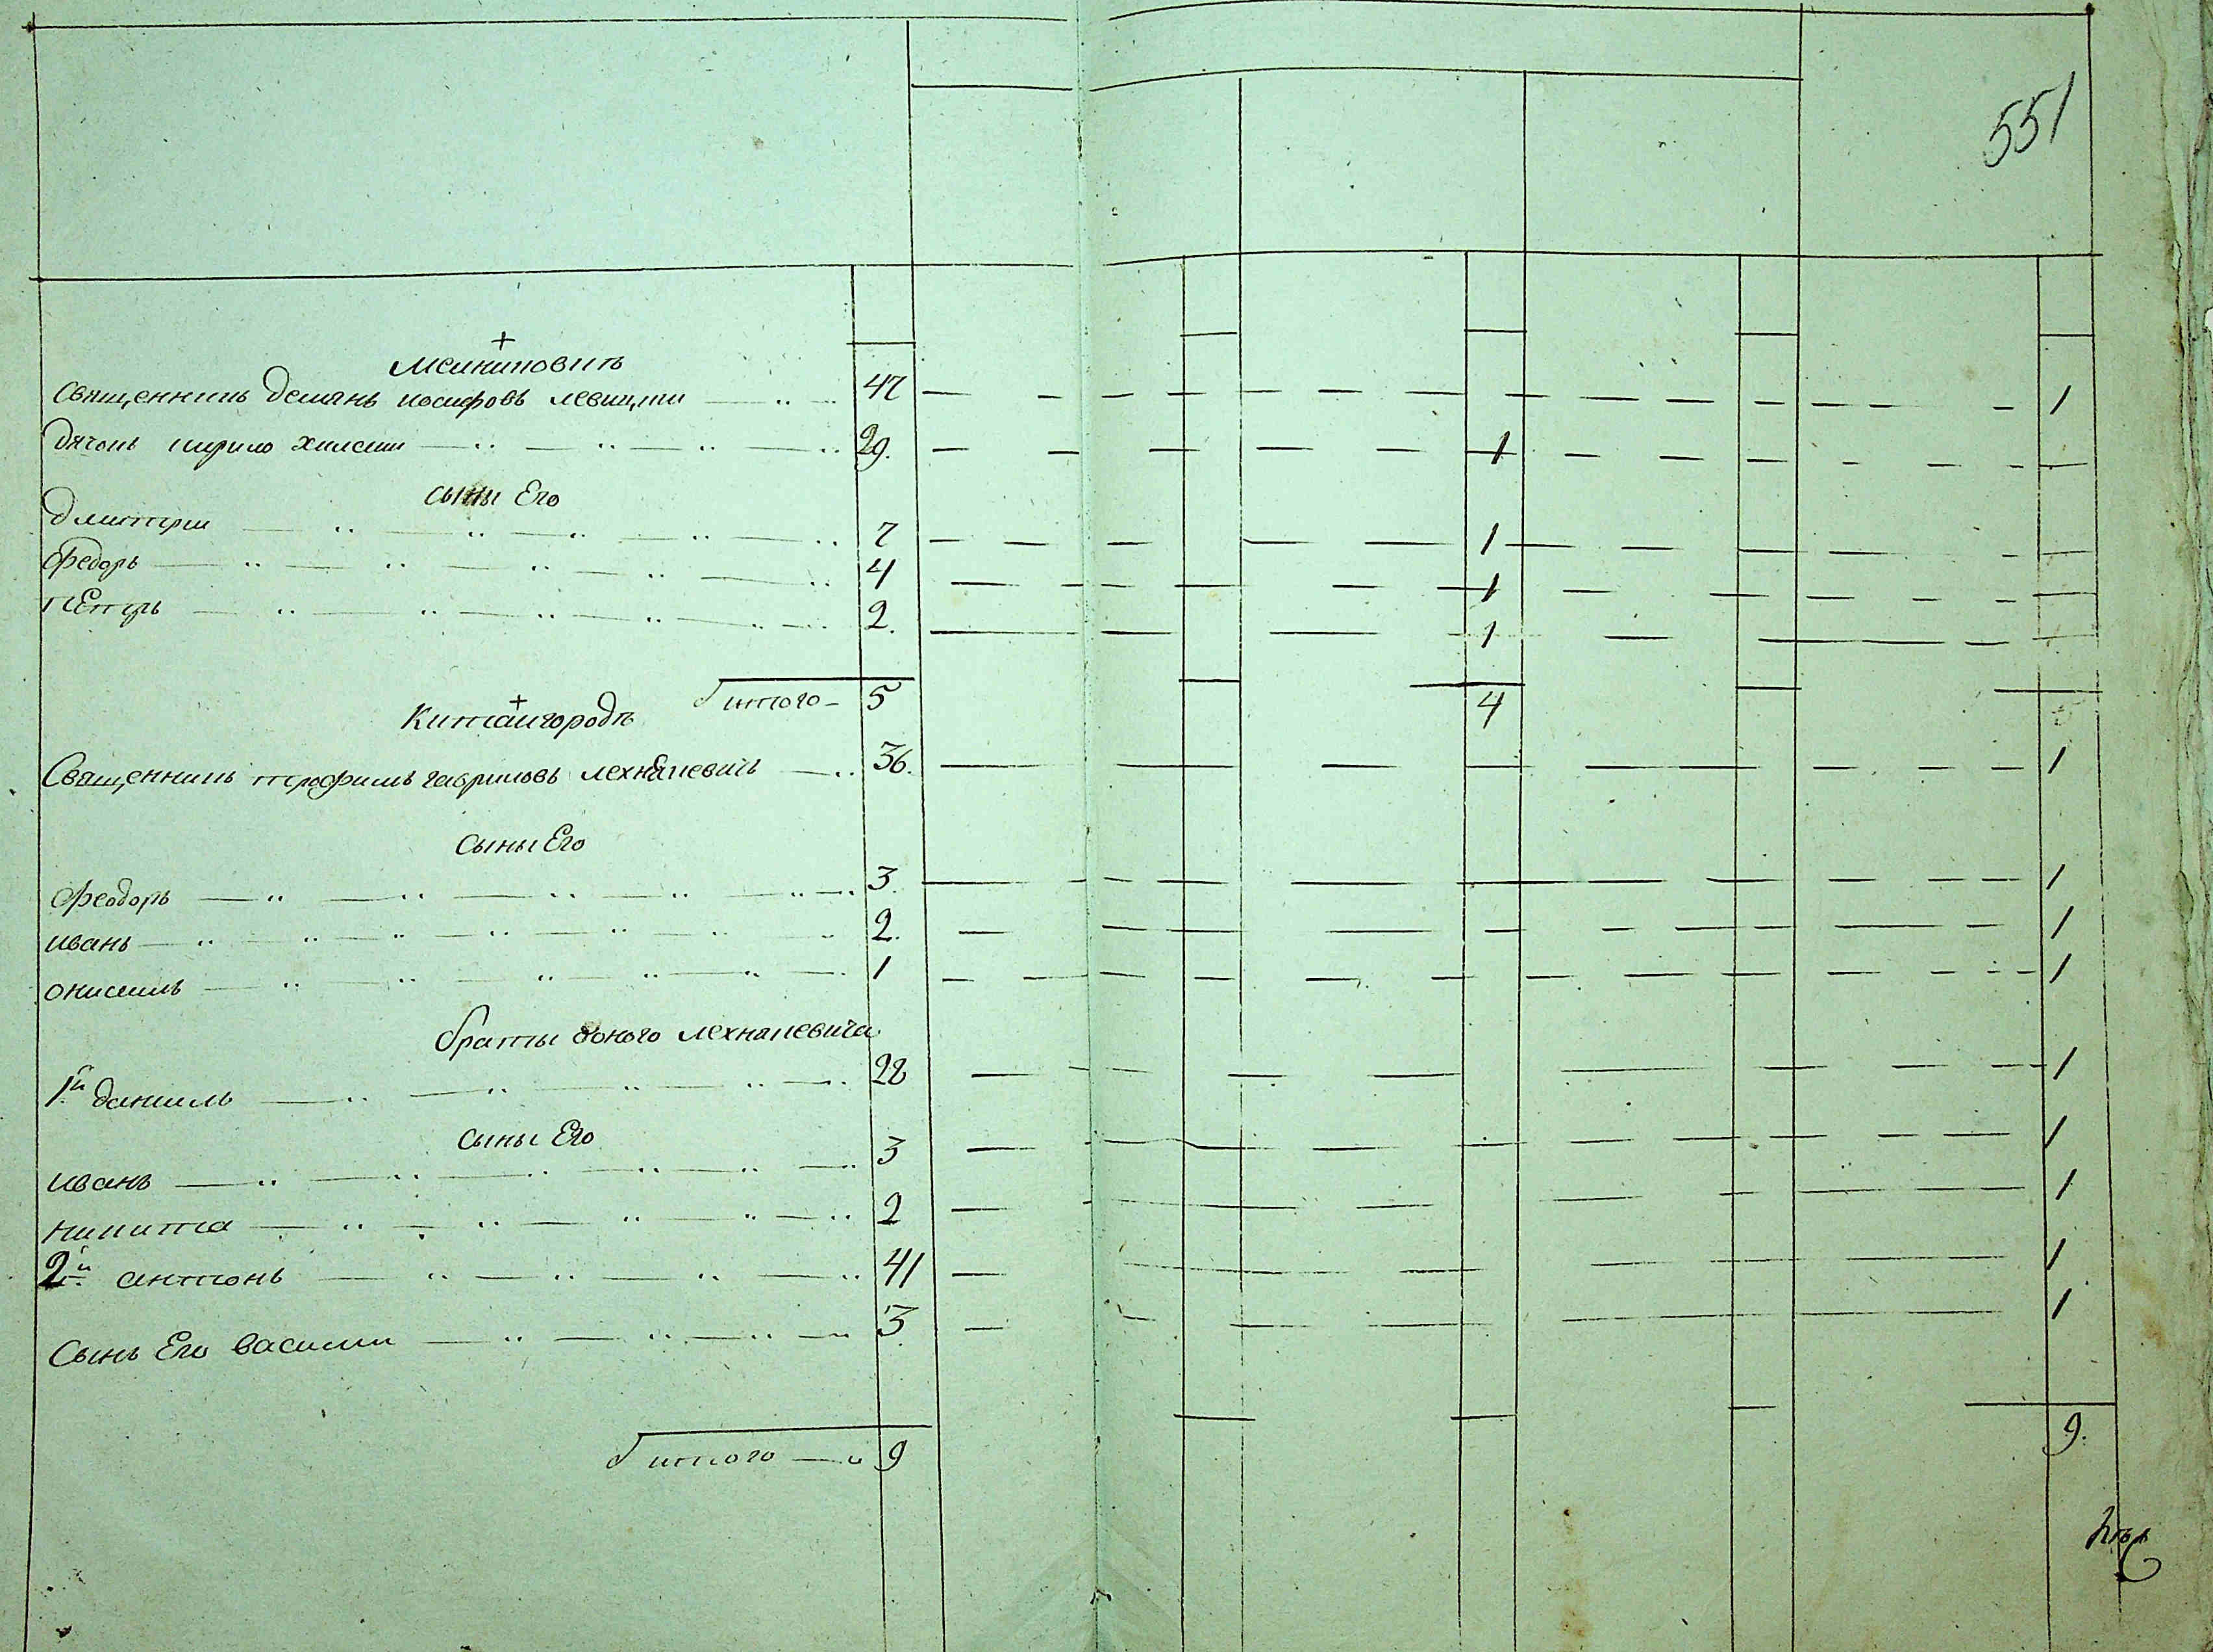 551
+
Священникъ Демянъ Иосифовъ Левицкии 47 1
Дячокъ Кирило 29. 1
Сыны Его
Дмитрии 7 1
Федоръ 4 1
ПЕтръ 2. 1
итого 5 4
+
Китаигородъ
Священникъ Трофимъ Гавриловъ Лехнѣкевичъ 36. 1
Сыны Его
Феодоръ 3. 1
Иванъ 2. 1
Онисимъ 1 1
Браты оного Лехнакевича
1й Данилъ 28 1
Сыны Его
Иванъ 3 1
Никита 2 1
2й Антонъ 41 1
Сынъ Его Василии 3. 1
итого 9 9.